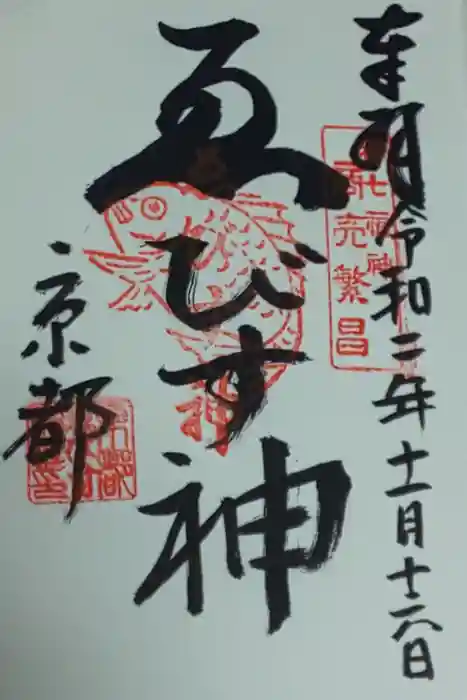 奉拝 令和二年十一月十六日
七福神
商売繁昌
ゑびす神
神
京都